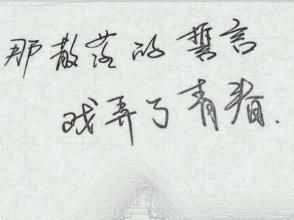 那散落的誓言
戏弄了青春.